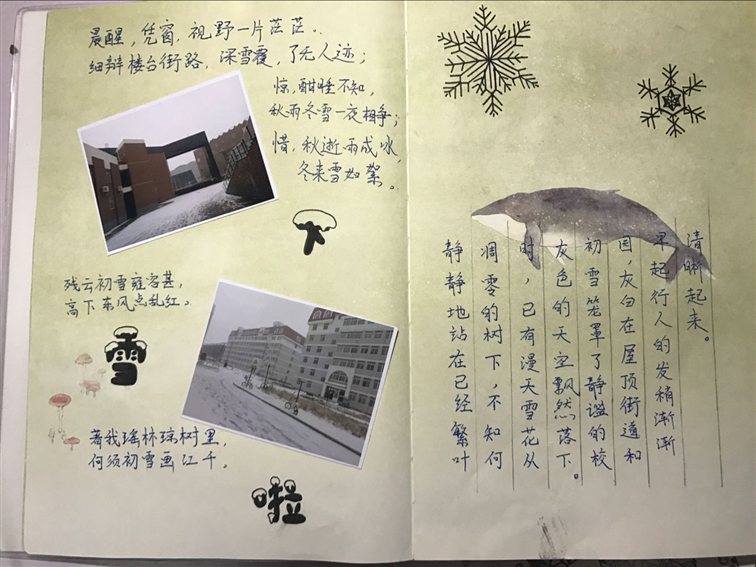 晨醒，凭窗，视野一片茫茫。
细辩楼台街路，深雪覆，了无人迹；
惊，酣睡不知，
秋雨冬雪一夜相争；
惜，秋逝雨成冰，
冬来雪如絮。
下
残云初雪雍容甚，
高下东风点乱红。
雪
著我瑶林琼树里，
何须初雪画江干。
啦
静静地站在已经繁叶
凋零的树下，不知何
时，已有漫天雪花从
灰色的天空飘然落下。
初雪笼罩了静谧的校
园，灰白在屋顶街道和
早起行人的发稍渐渐
清晰起来。